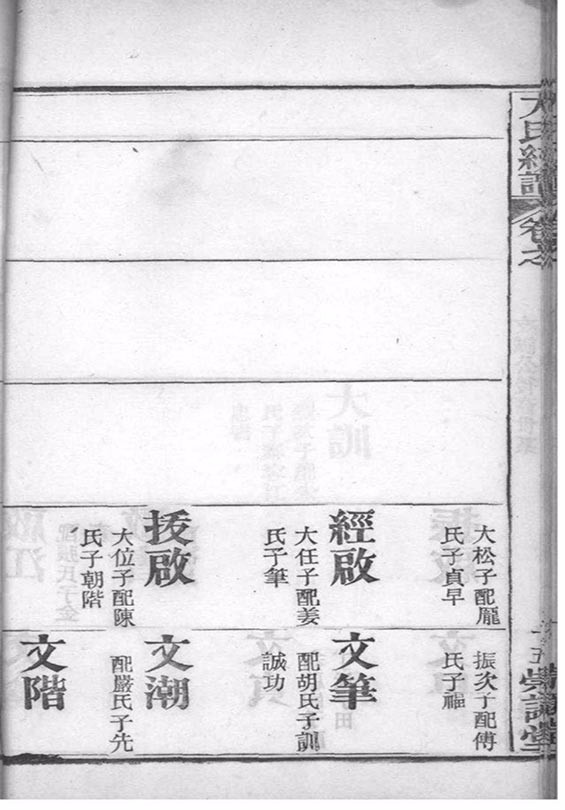 卷之
大松子配龐
氏子貞早
經啟
大任子配姜
氏子筆
啟
大位子配陳
氏子朝階
振次子配傅
氏子福
文筆
配胡氏子訓
誠功
文潮
配嚴氏子先
文階